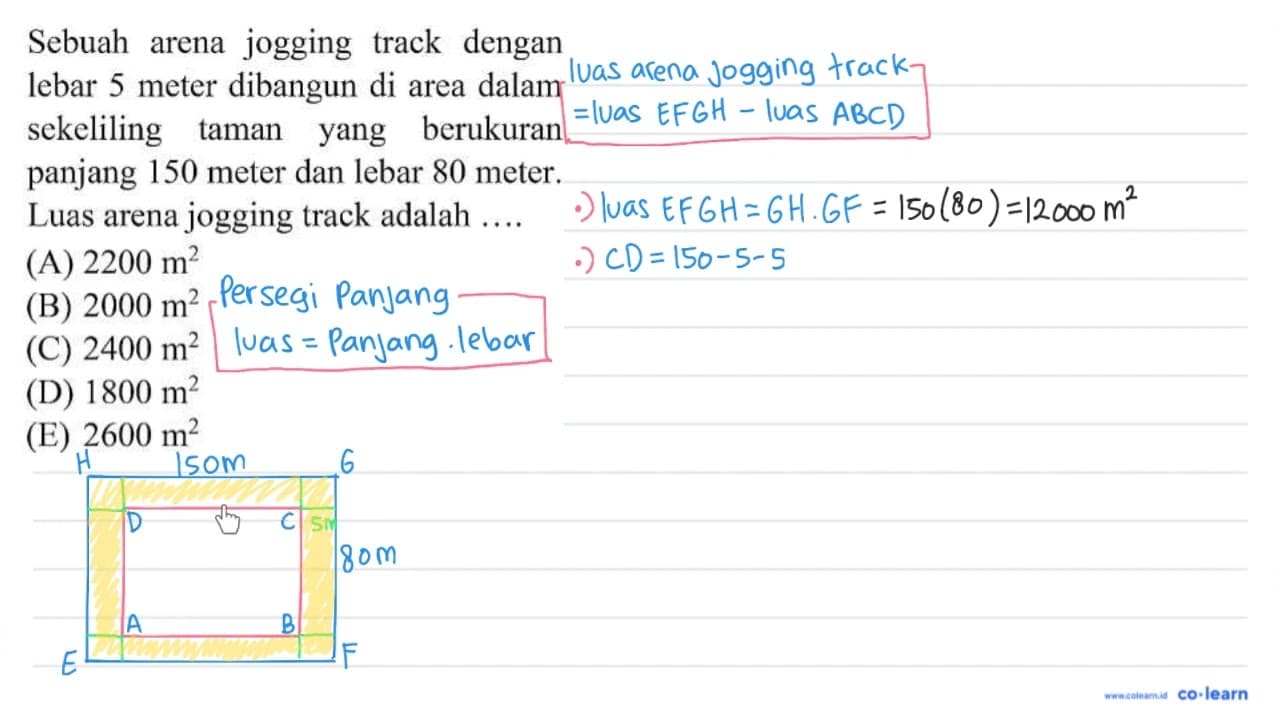 Sebuah arena jogging track dengan
lebar 5 meter dibangun di area dalam
sekeliling taman yang berukuran
panjang 150 meter dan lebar 80 meter.
Luas arena jogging track adalah ....
(A) 2200 m²
(B) 2000 m²
(C) 2400 m²
(D) 1800 m²
(E) 2600 m²
Persegi Panjang
luas = Panjang . lebar
luas arena jogging track
= luas EFGH - luas ABCD
•) luas EFGH = GH . GF = 150 (80) = 12000 m²
•) CD = 150 - 5 - 5
H 150m G
D C 5m
80m
A B
E F
www.colearn.id co·learn